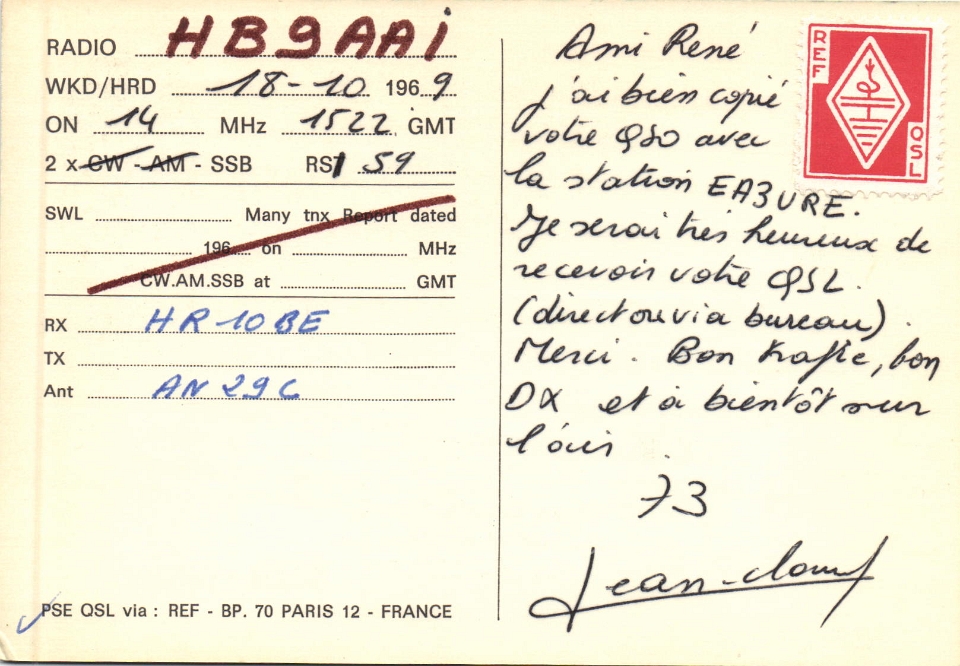 RADIO HB9AAI
WKD/HRD 18-10 1969
ON 14 MHz 1522 GMT
2 x CW - AM - SSB RST 59
SWL Many tnx Report dated
196 on MHz
CW.AM.SSB at GMT
RX HR10BE
TX
Ant AN 29C
PSE QSL via : REF - BP. 70 PARIS 12 - FRANCE
Ami René
j'ai bien copié
votre QSO avec
la station EA3URE.
Je serai très heureux de
recevoir votre QSL.
(direct ou via bureau).
Merci. Bon trafic, bon
DX et à bientôt sur
l'air
73
Jean-Claude
REF
QSL